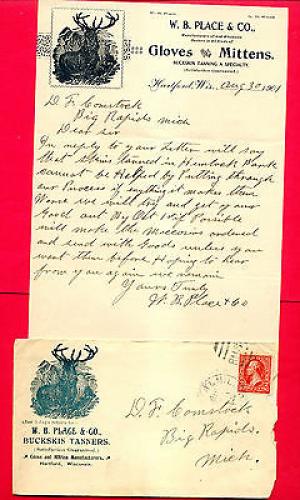 W. B. PLACE & CO.,
Manufacturers of and Wholesale
Dealers in all kinds of
Gloves and Mittens.
BUCKSKIN TANNING A SPECIALTY.
(Satisfaction Guaranteed.)
Hartford, Wis. Aug 30 1901
D. F. Comstock
Big Rapids Mich
Dear Sir
In reply to your Letter will say
that skins tanned in Hemlock Bark
cannot be Helped by Putting through
our Process if anything it makes them
Worse we will try and get your
Goods out By Oct 1st if Possible
will make the Moccasins ordered
and send with Goods unless you
want them before Hoping to hear
from you again we remain
Yours Truly
W. B. Place & Co
After 5 days return to
W. B. PLACE & CO.,
BUCKSKIN TANNERS.
(Satisfaction Guaranteed.)
Glove and Mitten Manufacturers,
Hartford, Wisconsin.
D. F. Comstock
Big Rapids.
Mich.